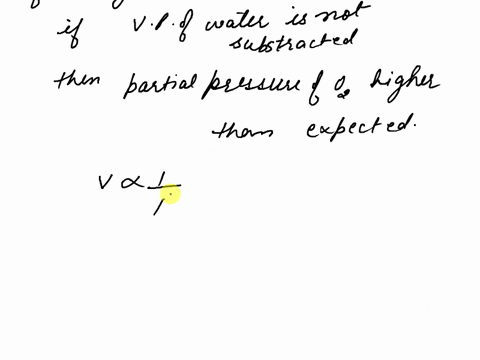 if V.P. of water is not
substracted
then partial pressure of O2 higher
than expected.
V ∝ 1/